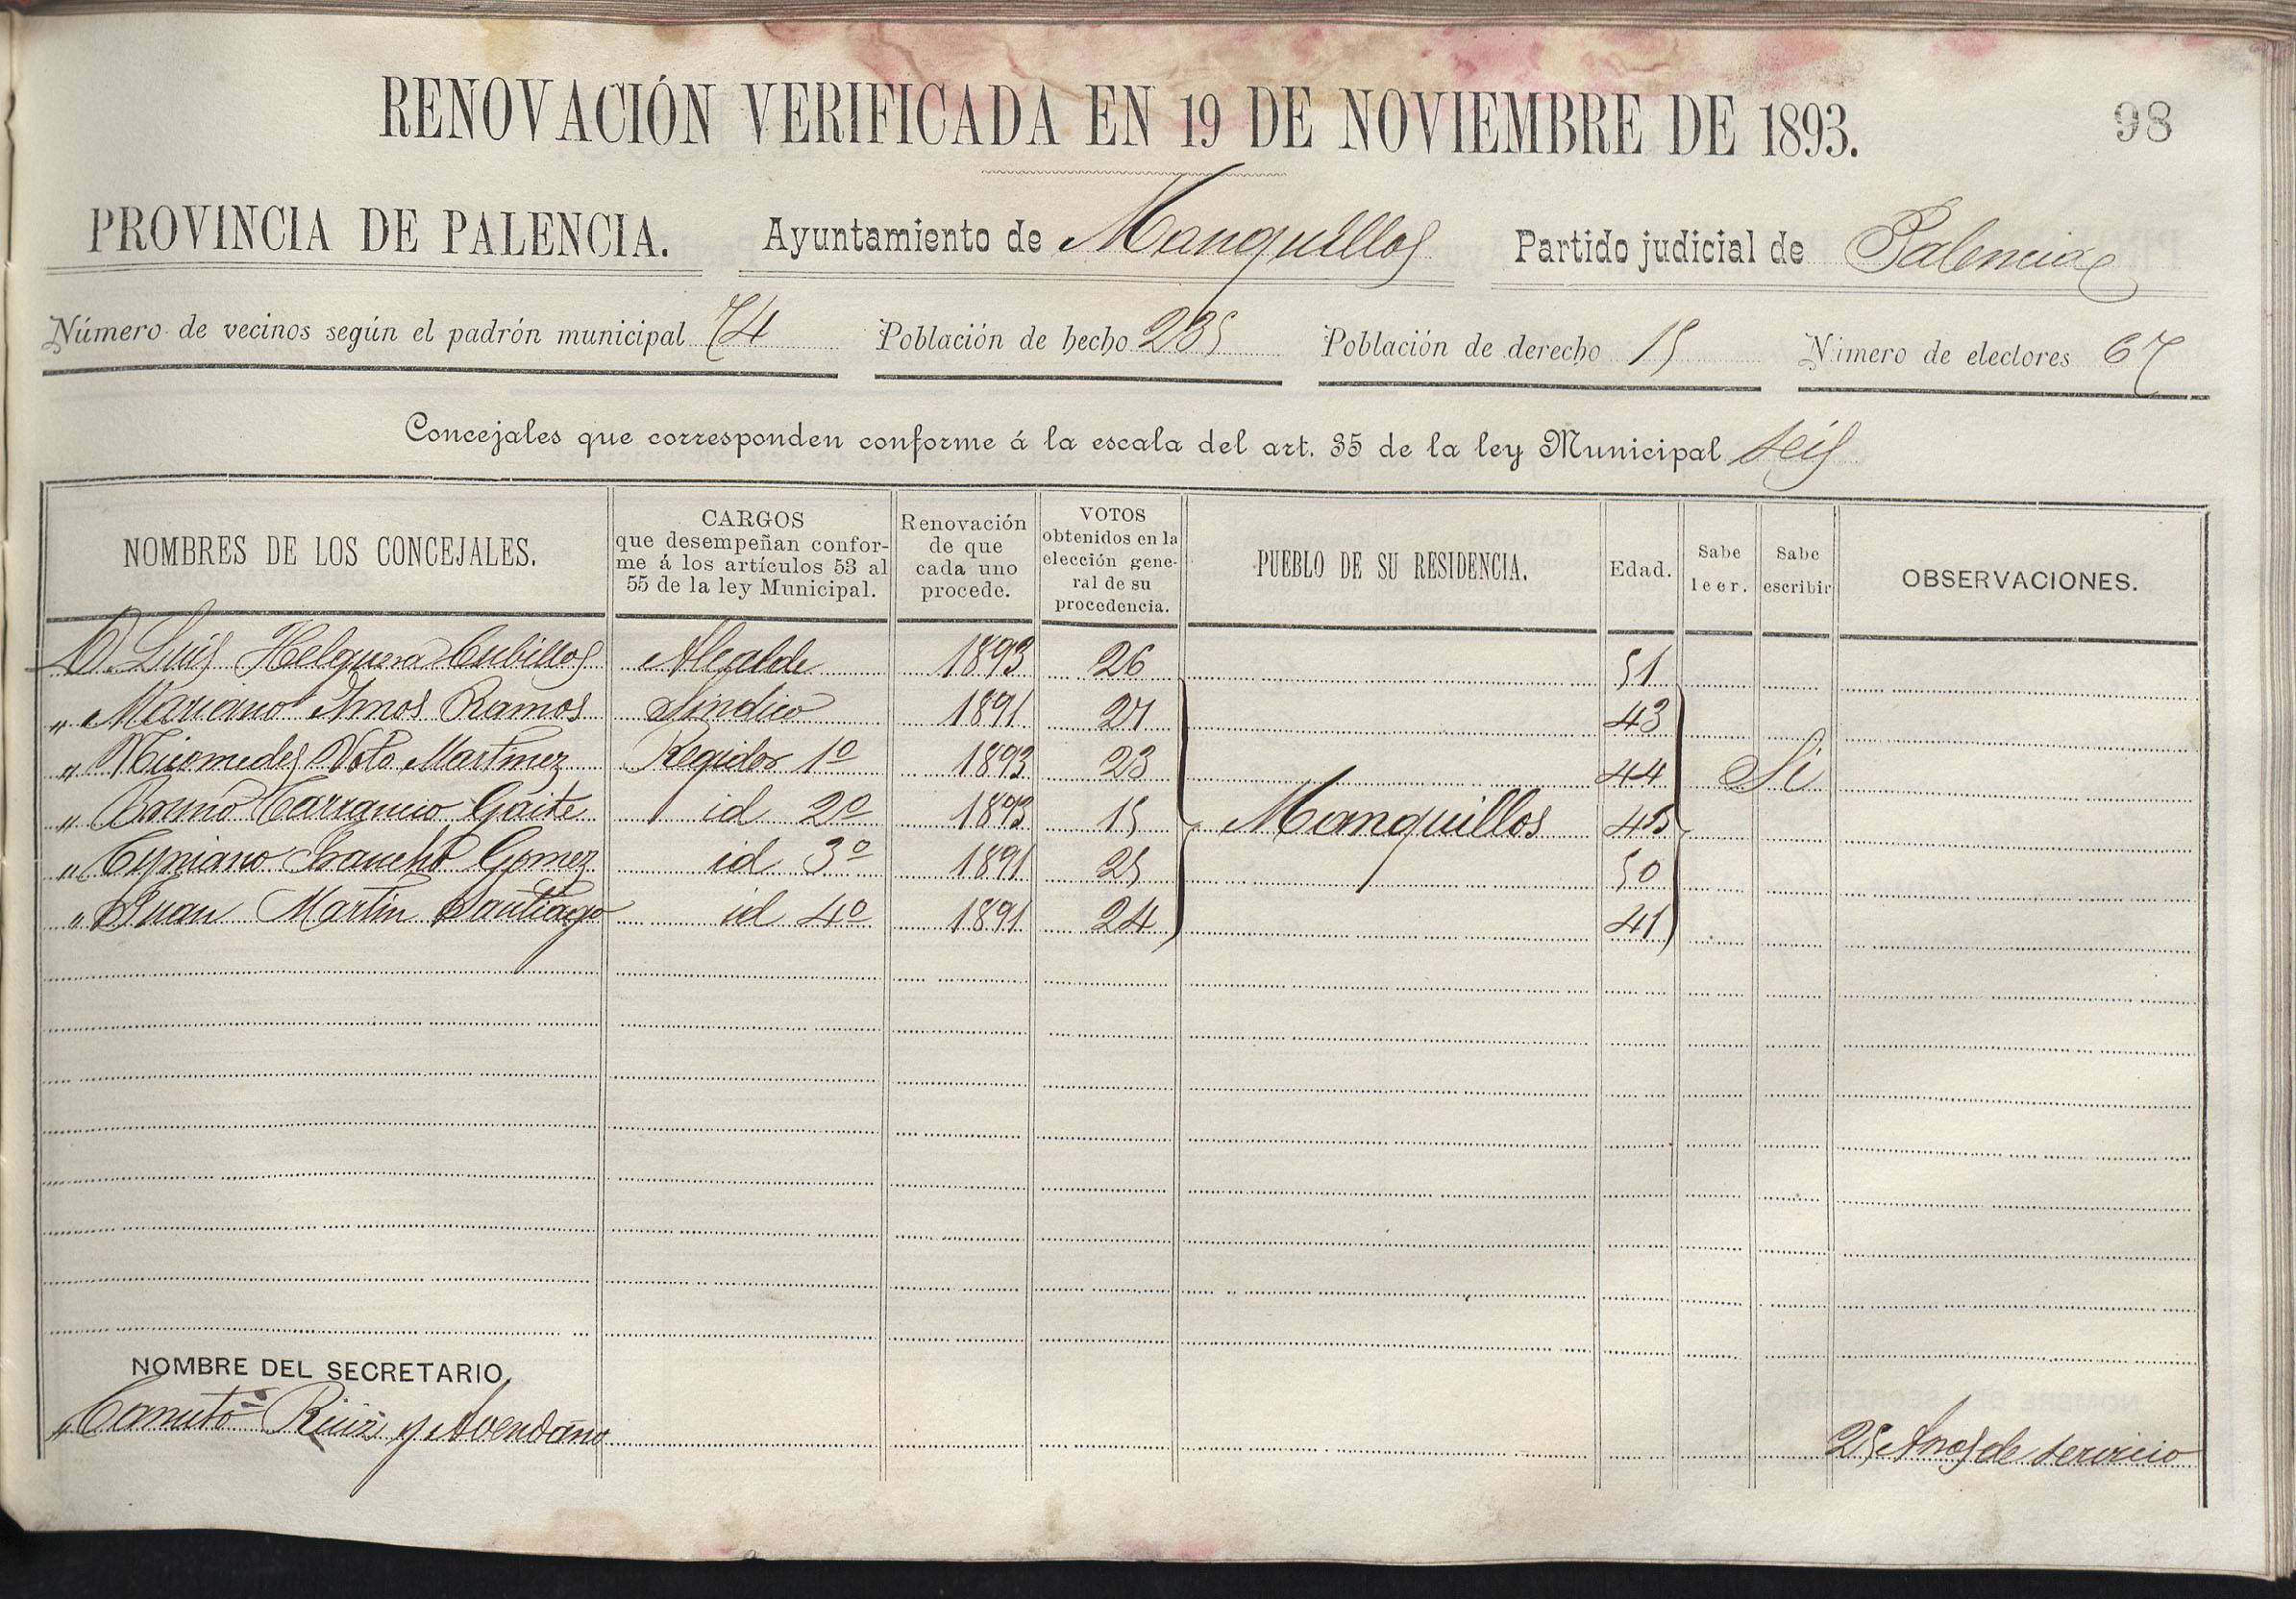 RENOVACIÓN VERIFICADA EN 19 DE NOVIEMBRE DE 1893. 98
PROVINCIA DE PALENCIA. Ayuntamiento de Manquillos Partido judicial de Palencia
Número de vecinos según el padrón municipal 74 Población de hecho 235 Población de derecho 15 Número de electores 67
Concejales que corresponden conforme á la escala del art. 35 de la ley Municipal seis
NOMBRES DE LOS CONCEJALES.
CARGOS
que desempeñan confor-
me á los artículos 53 al
55 de la ley Municipal.
Renovación
de que
cada uno
procede.
VOTOS
obtenidos en la
elección gene-
ral de su
procedencia.
PUEBLO DE SU RESIDENCIA.
Edad.
Sabe
leer.
Sabe
escribir
OBSERVACIONES.
D. Luis Helguera Cubillos Alcalde 1893 26 51
" Mariano Amos Ramos Sindico 1891 27 43
" Nicomedes Polo Martinez Regidor 1º 1893 23 44 Si
" Carrancio Gaite id 2º 1893 15 Manquillos 45
" Cypriano Sancho Gomez id 3º 1891 25 50
" Juan Martin Santiago id 4º 1891 24 41
NOMBRE DEL SECRETARIO.
" Canuto Ruiz y Avendaño 25 Años de servicio